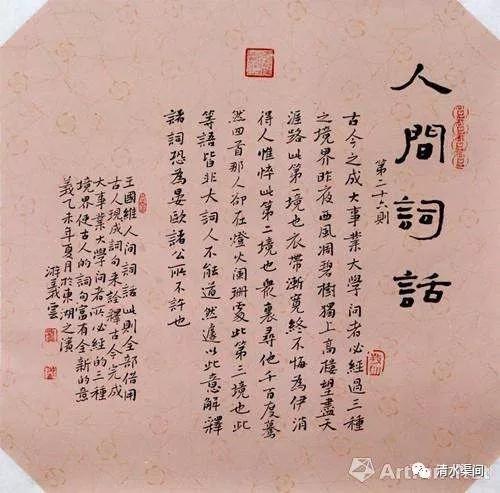 人間詞話
第二十六則
古今之成大事業大學問者必經過三種
之境界昨夜西風凋碧樹獨上高樓望盡天
涯路此第一境也衣帶漸寬終不悔為伊消
得人憔悴此第二境也衆裏尋他千百度驀
然回首那人卻在燈火闌珊處此第三境也此
等語皆非大詞人不能道然遽以此意解釋
諸詞恐為晏歐諸公所不許也
王國維人间詞話此則全部借用
古人現成詞句来詮釋古今完成
大事業大学问者所必經的三種
境界使古人的詞句富有全新的意
義乙未年夏月於東湖之濱
清水渠间